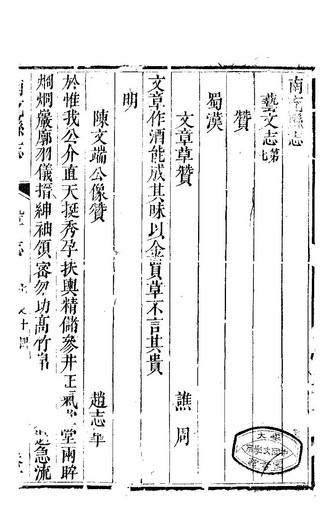 南充縣志
藝文志 第七
贊
蜀漢
文章草贊 譙周
文章作酒能成其味以金買草不言其貴
明
陳文端公像贊 趙志皐
於惟我公介直天挺秀孕扶輿精儲參井正氣 堂兩眸
炯炯嚴廓羽儀搢紳袖領審勿功高竹帛 急流